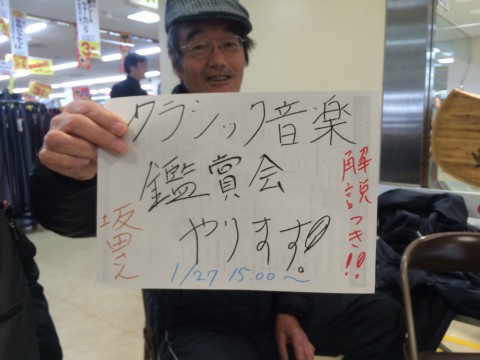 クラシック音楽
鑑賞会
やります!
解説つき!!
坂田さん
1/27 15:00〜